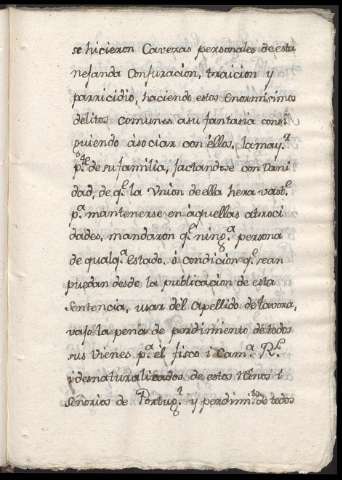 se hicieron Caveras personales de esta
nefanda Conjuracion, traicion y
parricidio, haciendo estos Enormisimos
delitos comunes a su fantasia consi
guiendo àsociar con èllos, la may.ª
p.te de su familia, jactandose con Vani
dad, de q.e la Vnion de ella hera vast.e
p.ª mantenerse en àquellas atroci
dades, mandaron q.e ning.ª persona
de qualq.ª Estado, ò condicion q.e sean
puedan desde la publicacion de esta
Sentencia, usar del Apellido de tavora,
vajo la pena de perdimiento de todos
sus Vienes p.ª el fisco i Cam.ª R.l
i desnaturalizados de estos Rēnos i
Señorios de Portug.l y perdim.to de todos